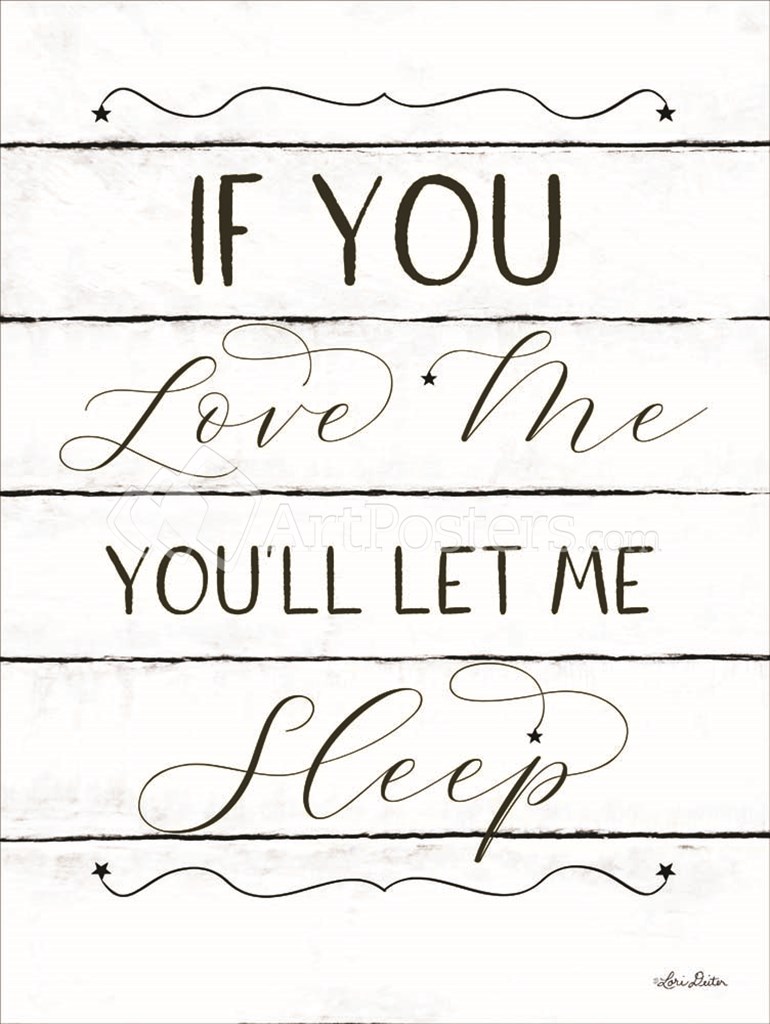 IF YOU
Love Me
ArtPosters.com
YOU'LL LET ME
Sleep
©Lori Deiter